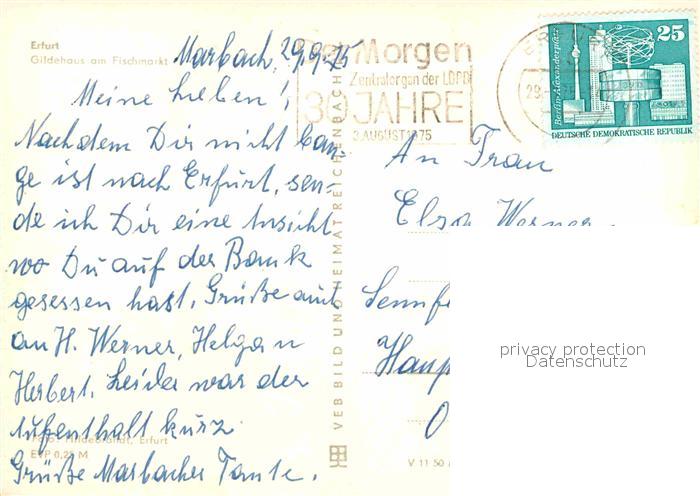 Erfurt
Gildehaus am Fischmarkt
Marbach, 29.9.75
Meine Lieben!
Nachdem Dir nicht ban-
ge ist nach Erfurt, sen-
de ich Dir eine Ansicht
wo Du auf der Bank
gesessen hast. Grüße auch
an H. Werner, Helga u
Herbert. Leider war der
Aufenthalt kurz
Grüße Marbacher Tante.
Foto: Hildebrandt, Erfurt
EVP 0,25 M
VEB BILD UND HEIMAT REICHENBACH
V 11 50
Der Morgen
Zentralorgan der LDPD
30 JAHRE
3. AUGUST 1975
25
Berlin-Alexanderplatz
DEUTSCHE DEMOKRATISCHE REPUBLIK
An Frau
Elsa Werner
Semfe
Haup
O
privacy protection
Datenschutz